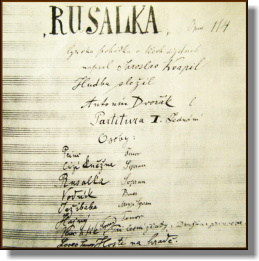 „RUSALKA" Opus 114
lyrická pohádka o třech aktech
napsal Jaroslav Kvapil
Hudbu složil
Antonín Dvořák
Partitura I. Jednání
Osoby:
Princ Tenor
Cizí kněžna Soprán
Rusalka Soprán
Vodník Bass
Ježibaba
Hajný Tenor
Hosté na hradě.